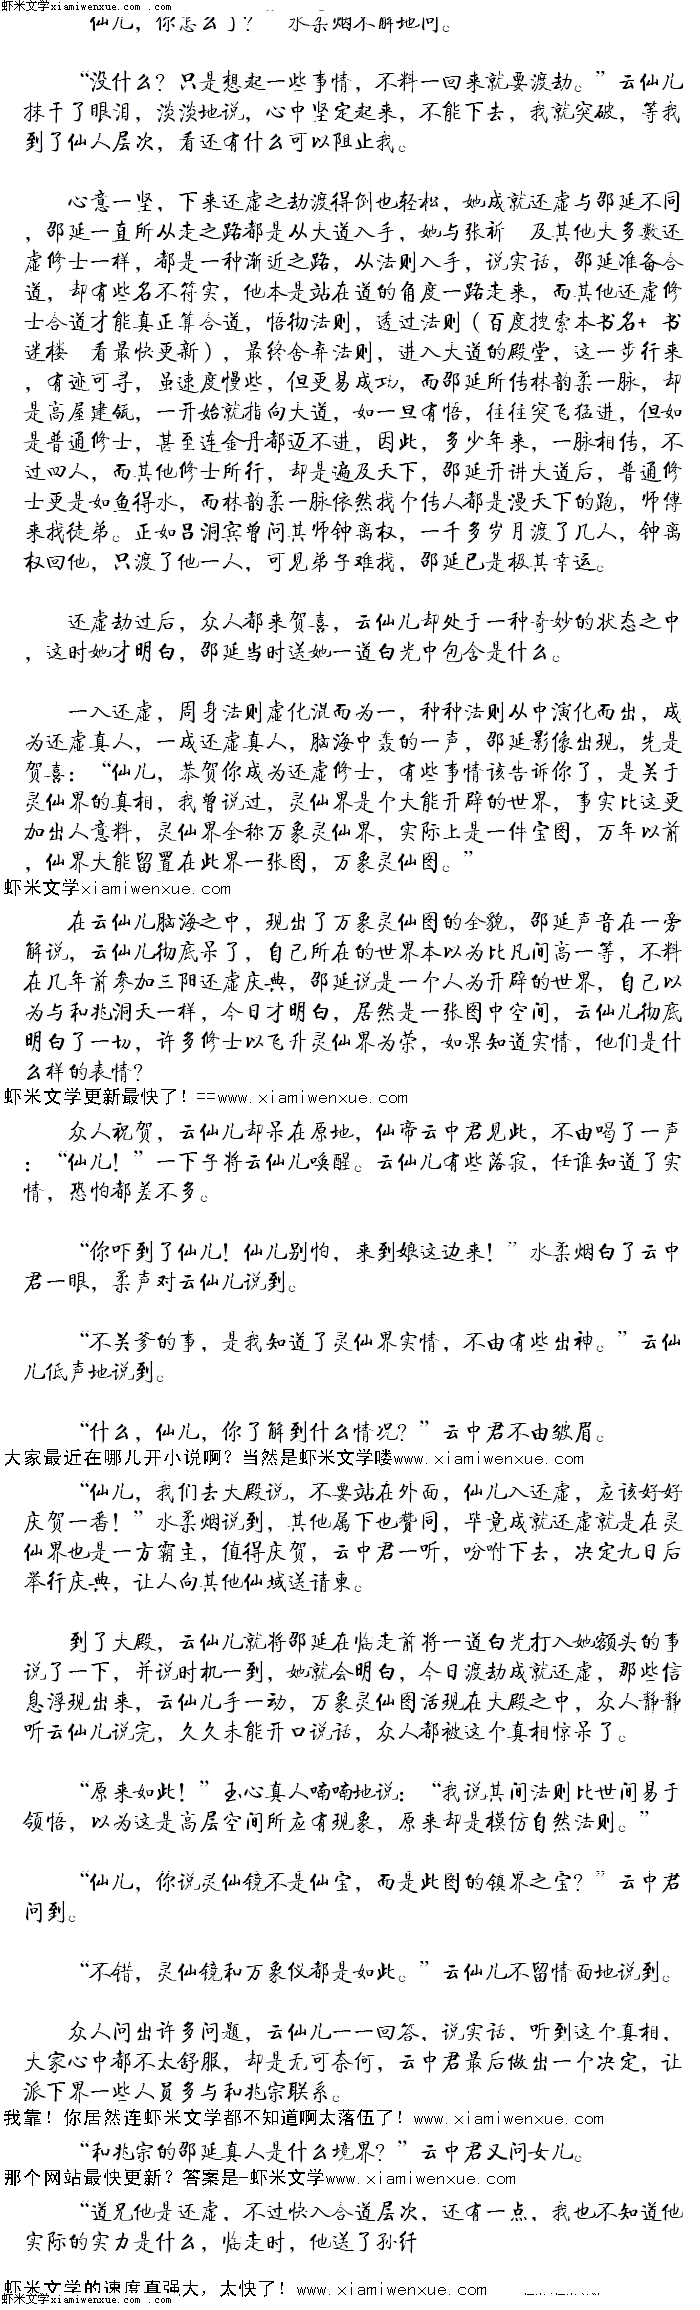 虾米文学xiamiwenxue.com .com
“仙儿，你怎么了？”水柔烟不解地问。
“没什么？只是想起一些事情，不料一回来就要渡劫。”云仙儿
抹干了眼泪，淡淡地说，心中坚定起来，不能下去，我就突破，等我
到了仙人层次，看还有什么可以阻止我。
心意一坚，下来还虚之劫渡得倒也轻松，她成就还虚与邵延不同
，邵延一直所从走之路都是从大道入手，她与张祈　及其他大多数还
虚修士一样，都是一种渐近之路，从法则入手，说实话，邵延准备合
道，却有些名不符实，他本是站在道的角度一路走来，而其他还虚修
士合道才能真正算合道，悟彻法则，透过法则（百度搜索本书名+ 书
迷楼　看最快更新），最终舍弃法则，进入大道的殿堂，这一步行来
，有迹可寻，虽速度慢些，但更易成功，而邵延所传林韵柔一脉，却
是高屋建瓴，一开始就指向大道，如一旦有悟，往往突飞猛进，但如
是普通修士，甚至连金丹都迈不进，因此，多少年来，一脉相传，不
过四人，而其他修士所行，却是遍及天下，邵延开讲大道后，普通修
士更是如鱼得水，而林韵柔一脉依然找个传人都是漫天下的跑，师傅
来找徒弟。正如吕洞宾曾问其师钟离权，一千多岁月渡了几人，钟离
权回他，只渡了他一人，可见弟子难找，邵延已是极其幸运。
还虚劫过后，众人都来贺喜，云仙儿却处于一种奇妙的状态之中
，这时她才明白，邵延当时送她一道白光中包含是什么。
一入还虚，周身法则虚化混而为一，种种法则从中演化而出，成
为还虚真人，一成还虚真人，脑海中轰的一声，邵延影像出现，先是
贺喜：“仙儿，恭贺你成为还虚修士，有些事情该告诉你了，是关于
灵仙界的真相，我曾说过，灵仙界是个大能开辟的世界，事实比这更
加出人意料，灵仙界全称万象灵仙界，实际上是一件宝图，万年以前
，仙界大能留置在此界一张图，万象灵仙图。”
虾米文学xiamiwenxue.com
在云仙儿脑海之中，现出了万象灵仙图的全貌，邵延声音在一旁
解说，云仙儿彻底呆了，自己所在的世界本以为比凡间高一等，不料
在几年前参加三阳还虚庆典，邵延说是一个人为开辟的世界，自己以
为与和兆洞天一样，今日才明白，居然是一张图中空间，云仙儿彻底
明白了一切，许多修士以飞升灵仙界为荣，如果知道实情，他们是什
么样的表情？
虾米文学更新最快了！==www.xiamiwenxue.com
众人祝贺，云仙儿却呆在原地，仙帝云中君见此，不由喝了一声
：“仙儿！”一下子将云仙儿唤醒。云仙儿有些落寂，任谁知道了实
情，恐怕都差不多。
“你吓到了仙儿！仙儿别怕，来到娘这边来！”水柔烟白了云中
君一眼，柔声对云仙儿说到。
“不关爹的事，是我知道了灵仙界实情，不由有些出神。”云仙
儿低声地说到。
“什么，仙儿，你了解到什么情况？”云中君不由皱眉。
大家最近在哪儿开小说啊？当然是虾米文学喽www.xiamiwenxue.com
“仙儿，我们去大殿说，不要站在外面，仙儿入还虚，应该好好
庆贺一番！”水柔烟说到，其他属下也赞同，毕竟成就还虚就是在灵
仙界也是一方霸主，值得庆贺，云中君一听，吩咐下去，决定九日后
举行庆典，让人向其他仙域送请柬。
到了大殿，云仙儿就将邵延在临走前将一道白光打入她额头的事
说了一下，并说时机一到，她就会明白，今日渡劫成就还虚，那些信
息浮现出来，云仙儿手一动，万象灵仙图活现在大殿之中，众人静静
听云仙儿说完，久久未能开口说话，众人都被这个真相惊呆了。
“原来如此！”玉心真人喃喃地说：“我说其间法则比世间易于
领悟，以为这是高层空间所应有现象，原来却是模仿自然法则。”
“仙儿，你说灵仙镜不是仙宝，而是此图的镇界之宝？”云中君
问到。
“不错，灵仙镜和万象仪都是如此。”云仙儿不留情面地说到。
众人问出许多问题，云仙儿一一回答，说实话，听到这个真相，
大家心中都不太舒服，却是无可奈何，云中君最后做出一个决定，让
派下界一些人员多与和兆宗联系。
我靠！你居然连虾米文学都不知道啊太落伍了！www.xiamiwenxue.com
“和兆宗的邵延真人是什么境界？”云中君又问女儿。
那个网站最快更新？答案是-虾米文学www.xiamiwenxue.com
“道兄他是还虚，不过快入合道层次，还有一点，我也不知道他
实际的实力是什么，临走时，他送了孙纤
虾米文学的速度真强大，太快了！www.xiamiwenxue.com
虾米文学xiamiwenxue.com .com